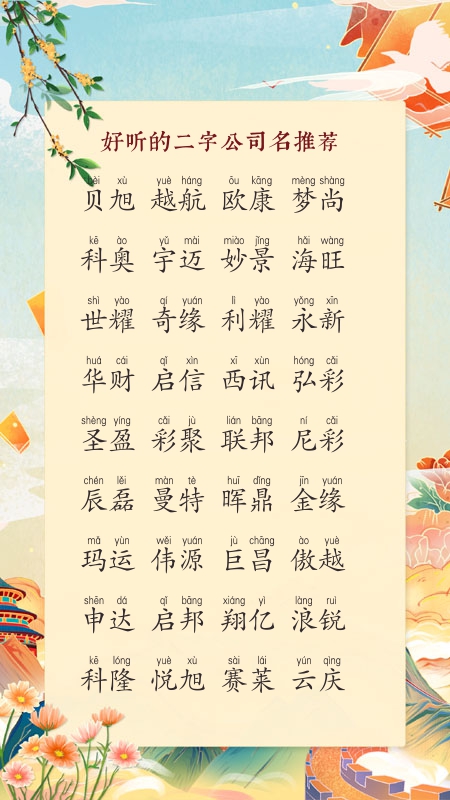 好听的二字公司名推荐
bèi xù yuè háng ōu kāng mèng shàng
贝旭 越航 欧康 梦尚
kē ào yǔ mài miào jǐng hǎi wàng
科奥 宇迈 妙景 海旺
shì yào qí yuán lì yào yǒng xīn
世耀 奇缘 利耀 永新
huá cái qǐ xìn xī xùn hóng cǎi
华财 启信 西讯 弘彩
shèng yíng cǎi jù lián bāng ní cǎi
圣盈 彩聚 联邦 尼彩
chén lěi màn tè huī dǐng jīn yuán
辰磊 曼特 晖鼎 金缘
mǎ yùn wěi yuán jù chāng ào yuè
玛运 伟源 巨昌 傲越
shēn dá qǐ bāng xiáng yì làng ruì
申达 启邦 翔亿 浪锐
kē lóng yuè xù sài lái yún qìng
科隆 悦旭 赛莱 云庆